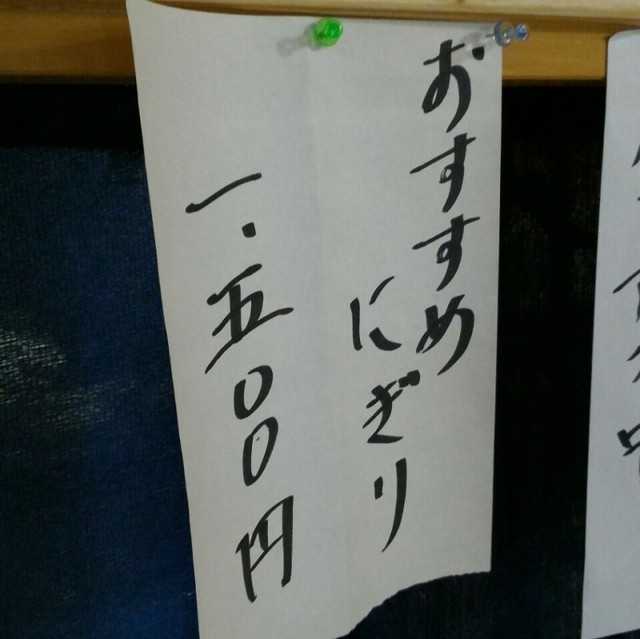 おすすめ
にぎり
一.五〇〇円